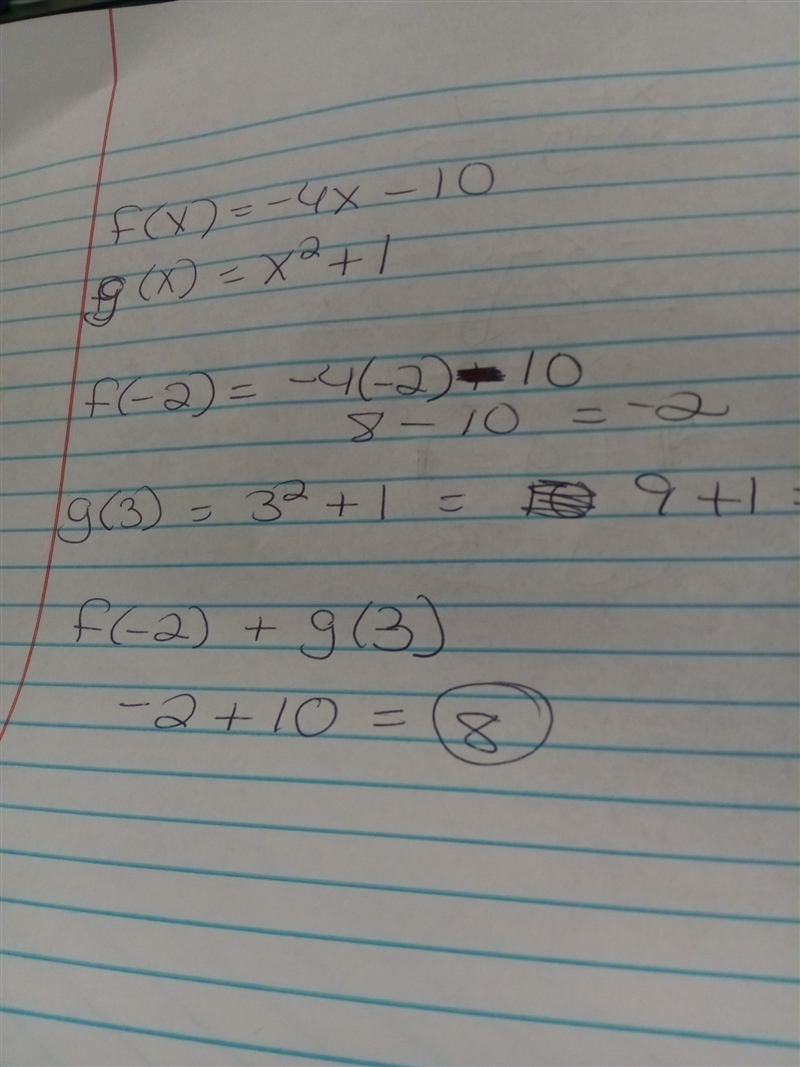 f(x) = -4x - 10
g(x) = x² + 1
f(-2) = -4(-2) - 10
8 - 10 = -2
g(3) = 3² + 1 = 9 + 1 =
f(-2) + g(3)
-2 + 10 = 8